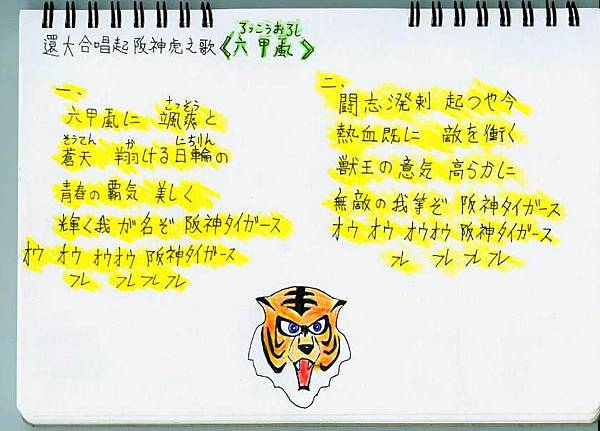 還大合唱起阪神虎之歌《六甲颪》
ろっこうおろし
一、
六甲颪に 颯爽と
さっそう
蒼天 翔ける日輪の
そうてん か にちりん
青春の覇気 美しく
輝く我が名ぞ 阪神タイガース
オウ オウ オウオウ 阪神タイガース
フレ フレフレフレ
二、
闘志溌剌 起つや今
熱血既に 敵を衝く
獣王の意気 高らかに
無敵の我等ぞ 阪神タイガース
オウ オウ オウオウ 阪神タイガース
フレ フレ フレフレ